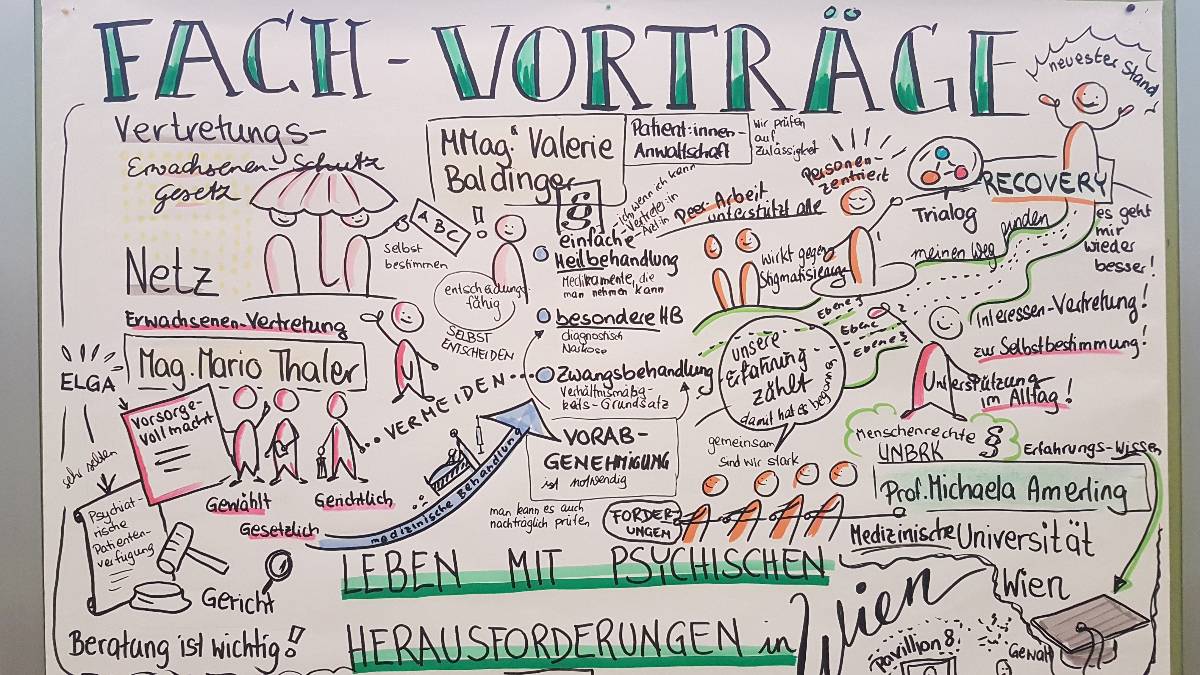 FACH-VORTRÄGE
Vertretungs-
Erwachsenen-Schutz
gesetz
Netz
Erwachsenen-Vertretung
Mag. Mario Thaler
ELGA
Vorsorge-
vollmacht
sehr selten
Psychiat-
rische
Patienten-
verfügung
Gewählt
Gesetzlich
Gerichtlich
Gericht
Beratung ist wichtig!
A B C
!
Selbst
bestimmen
entscheidungs-
fähig
SELBST
ENTSCHEIDEN
VERMEIDEN
medizinische Behandlung
MMag.ª Valerie
Baldinger
Patient:innen-
Anwaltschaft
wir prüfen
auf
Zulässigkeit
§
ich wenn ich kann
Vertreter:in
Arzt:in
einfache
Heilbehandlung
Medikamente, die
man nehmen kann
besondere HB
diagnostisch
Narkose
Zwangsbehandlung
Verhältnismäßig-
keits-Grundsatz
VORAB-
GENEHMIGUNG
ist notwendig
man kann es auch
nachträglich prüfen
Peer-Arbeit
unterstützt alle
wirkt gegen
Stigmatisierung
Personen-
zentriert
Trialog
neuester Stand
RECOVERY
meinen Weg finden
es geht
mir
wieder
besser!
Ebene 1
Ebene 2
Ebene 3
unsere
Erfahrung
zählt
damit hat es begonnen
gemeinsam
sind wir stark
FORDER-
UNGEN
Interessen-Vertretung!
zur Selbstbestimmung!
Unterstützung
im Alltag!
Menschenrechte
UNBRK
§
Erfahrungs-Wissen
Prof.a Michaela Amerling
Medizinische Universität
Wien
LEBEN MIT PSYCHISCHEN
HERAUSFORDERUNGEN in Wien
Pavillion 8
Gewalt